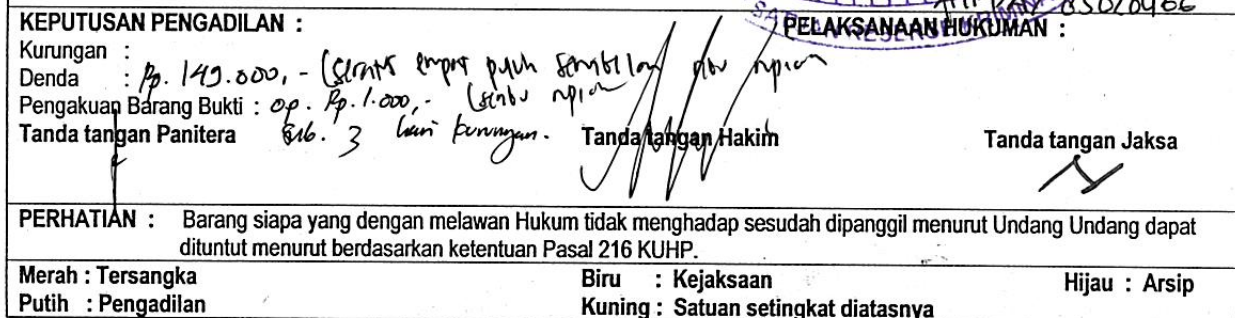 AIPDA 85020406
KEPUTUSAN PENGADILAN : PELAKSANAAN HUKUMAN :
Kurungan :
Denda : Rp. 149.000,- (seratus empat puluh sembilan ribu rupiah
Pengakuan Barang Bukti : op. Rp. 1.000,- (seribu rupiah
Tanda tangan Panitera sub. 3 hari kurungan. Tanda tangan Hakim Tanda tangan Jaksa
PERHATIAN : Barang siapa yang dengan melawan Hukum tidak menghadap sesudah dipanggil menurut Undang Undang dapat
dituntut menurut berdasarkan ketentuan Pasal 216 KUHP.
Merah : Tersangka Biru : Kejaksaan Hijau : Arsip
Putih : Pengadilan Kuning : Satuan setingkat diatasnya